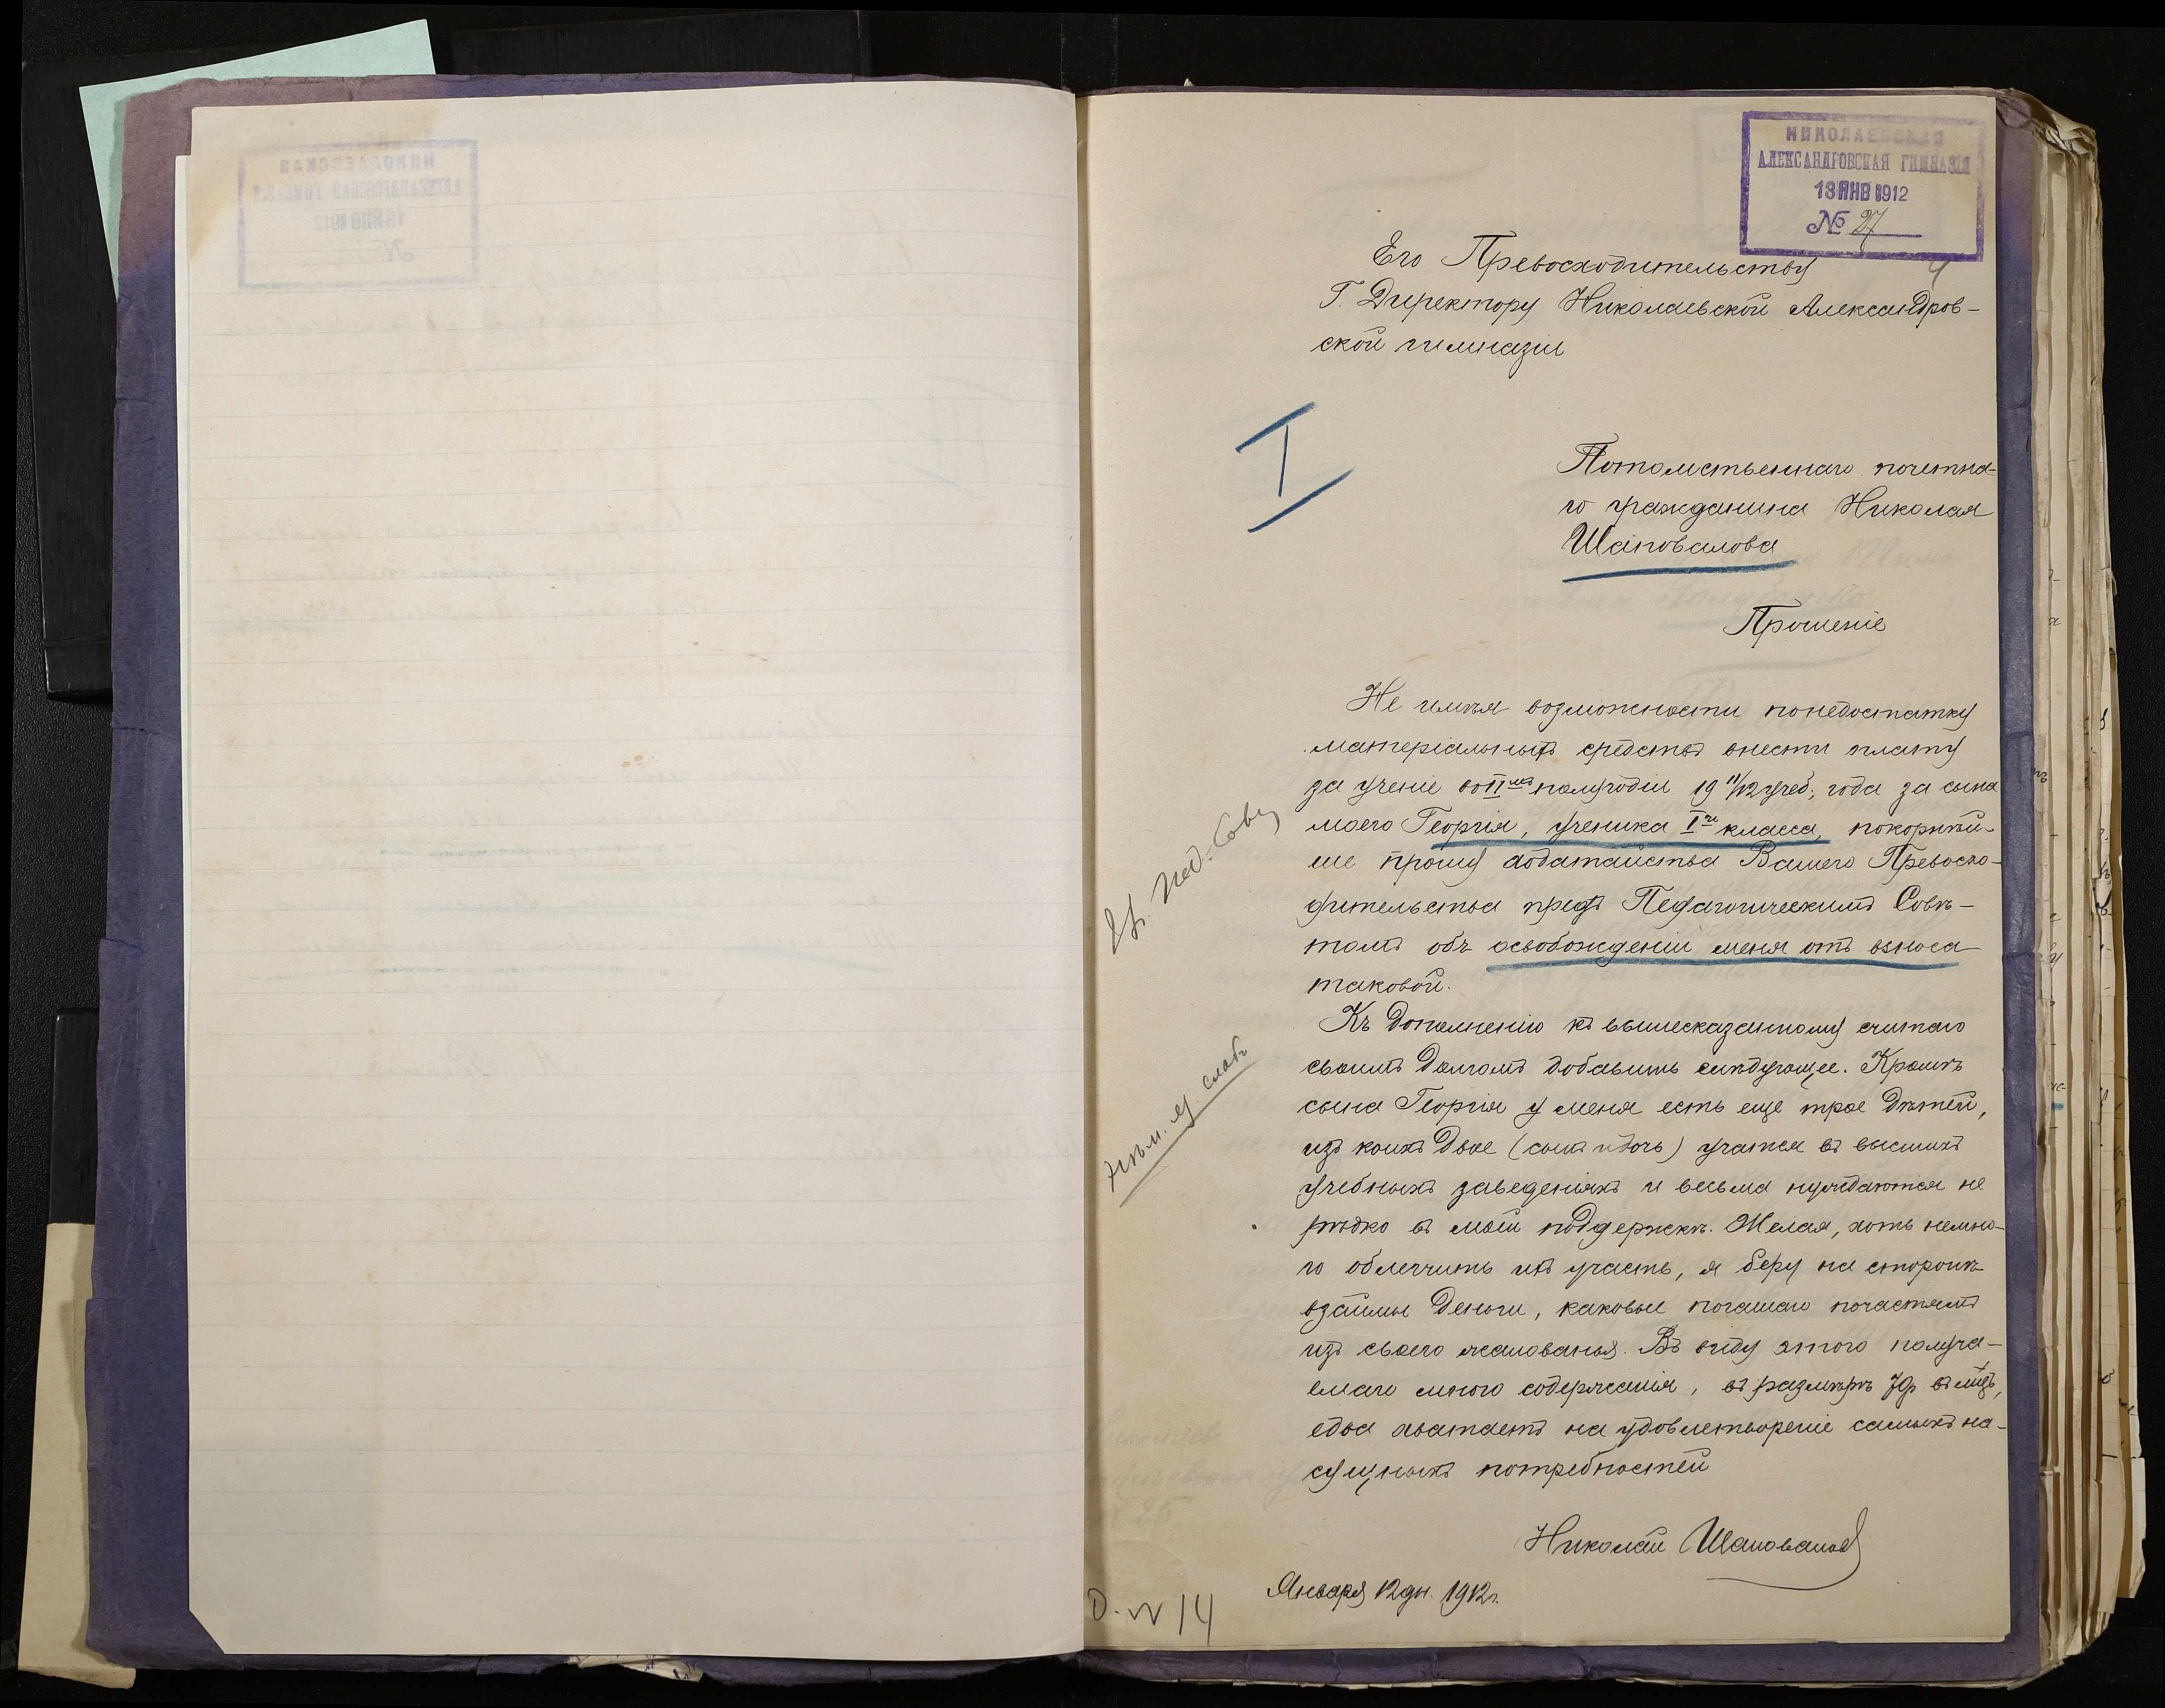 НИКОЛАЕВСКАЯ
АЛЕКСАНДРОВСКАЯ ГИМНАЗІЯ
13 ЯНВ 1912
№ 27
4
Его Превосходительству
Г. Директору Николаевской Александров-
ской гимназіи
I
Потомственнаго почетна-
го гражданина Николая
Шаповалова
Прошеніе
Не имѣя возможности понедостатку
матеріальныхъ средствъ внести плату
за ученіе во II мъ полугодіи 19 11/12 учеб. года за сына
моего Георгія, ученика I го класса, покорнѣй-
ше прошу ходатайства Вашего Превосхо-
дительства предъ Педагогическимъ Совѣ-
томъ объ освобожденіи меня отъ взноса
таковой.
Къ дополненію къ вышесказанному считаю
своимъ долгомъ добавить слѣдующее. Кромѣ
сына Георгія у меня есть еще трое дѣтей,
изъ коихъ двое (сынъ и дочь) учатся въ высшихъ
учебныхъ заведеніяхъ и весьма нуждаются не
рѣдко въ моей поддержкѣ. Желая, хоть немно-
го облегчить ихъ участь, я беру на сторонѣ
взаймы деньги, каковые погашаю почастямъ
изъ своего жалованья. Въ виду этого получа-
емаго мною содержанія, въ размѣрѣ 70р въ мѣс.,
едва хватаетъ на удовлетвореніе самыхъ на-
сущныхъ потребностей
Николай Шаповалов
Января 12 дн. 1912 г.
Пед. Сову
Нѣм. яз. слабъ
14